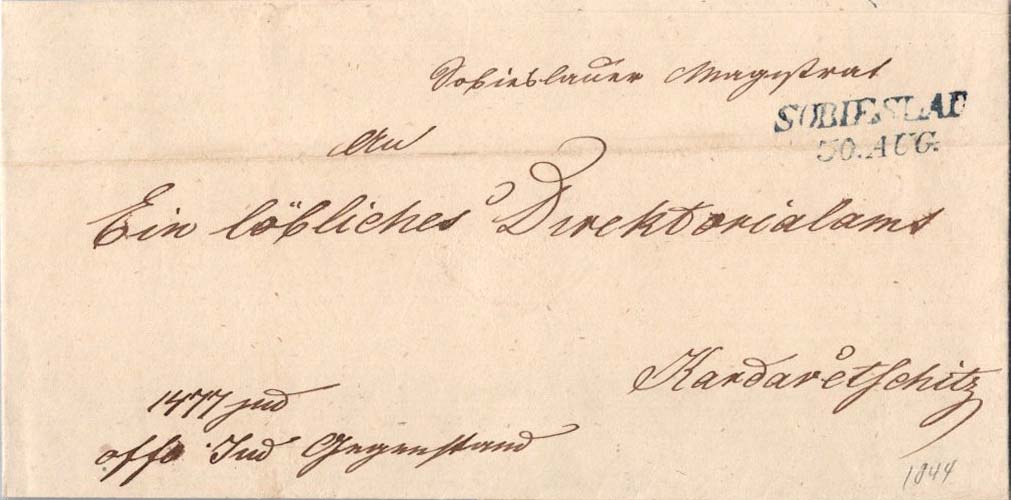 Sobieslauer Magistrat
SOBIESLAU
30. AUG.
An
Ein löbliches Direktorialamt
Kardaretschitz
1477 jud
offo Jud Gegenstand
1844